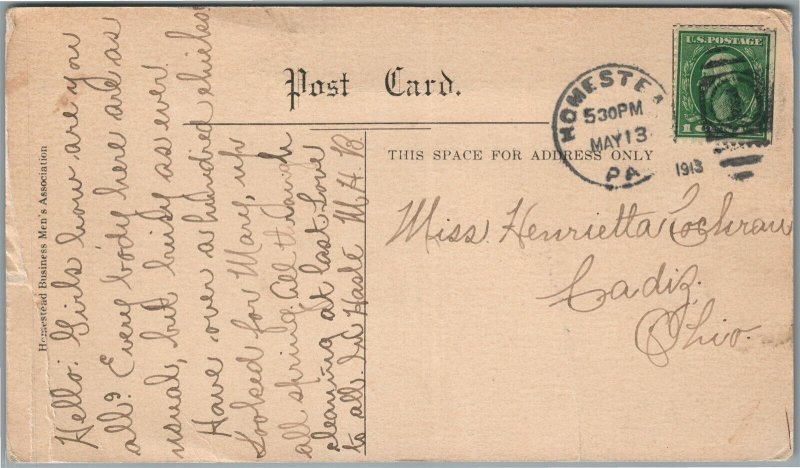 Post Card.
THIS SPACE FOR ADDRESS ONLY
HOMESTEA
530PM
MAY 13
1913
PA
U.S. POSTAGE
1
Homestead Business Men's Association
Hello: Girls how are you
all? Every body here are as
usual, but buisy as ever.
Have over a hundred chicks.
Looked for Mary, up
all spring. All through
cleaning at last. Love
to all. In Haste M. H. B
Miss. Henrietta Cochran
Cadiz.
Ohio.